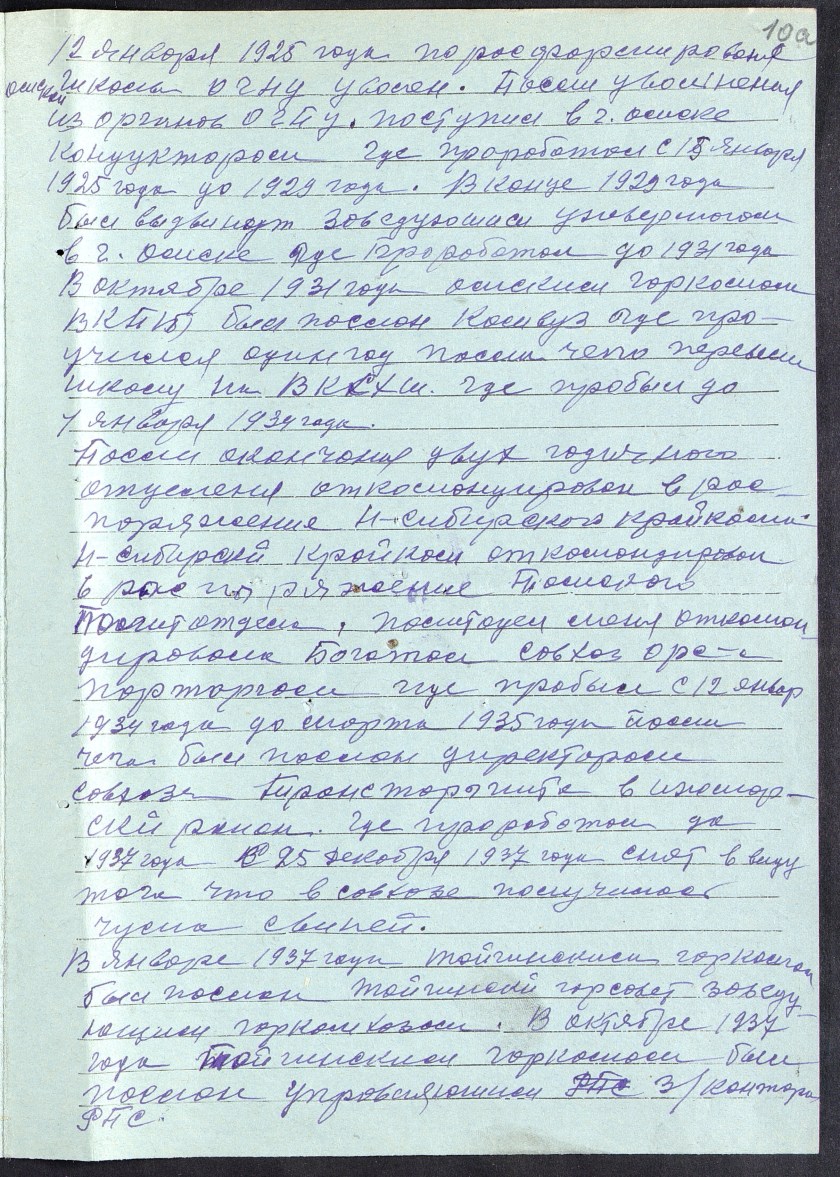 10а
12 января 1925 года по росформированя
омской школы ОГПУ уволен. После уволнения
из органов ОГПУ. поступил в г. омске
кондуктором где проработал с 15 января
1925 года до 1929 года. В конце 1929 года
был выдвинут зоведующим универмогом
в г. омске где проработал до 1931 года
В октябре 1931 года омским горкомом
ВКП(б) был послон комвуз где про-
учился один год после чего перевели
школу на ВКСХШ. где пробыл до
1 января 1934 года.
После окончаня двух годичного
откомондировон в рос-
поряжение Н-сибирского крайкома
Н-сибирскй крайком откомондировон
в распоряжение Томского
Политотдела, политодел меня откомон-
дировола Боготол совхоз орс-а
парторгом где пробыл с 12 январ
1934 года до морта 1935 года после
чего был послон директором
совхоза Тронсторгпита в ижмор-
скй район. где проработал до
1937 года С 25 декобря 1937 года снят в виду
того что в совхозе получилос
чума свиней.
В январе 1937 года тойгинским горкомом
был послон тойгинскй горсовет зоведу-
ющим горкомхозом. В октябре 1937
года Тойгинским горкомом был
послон упровляющим РПС з/контора
РПС.